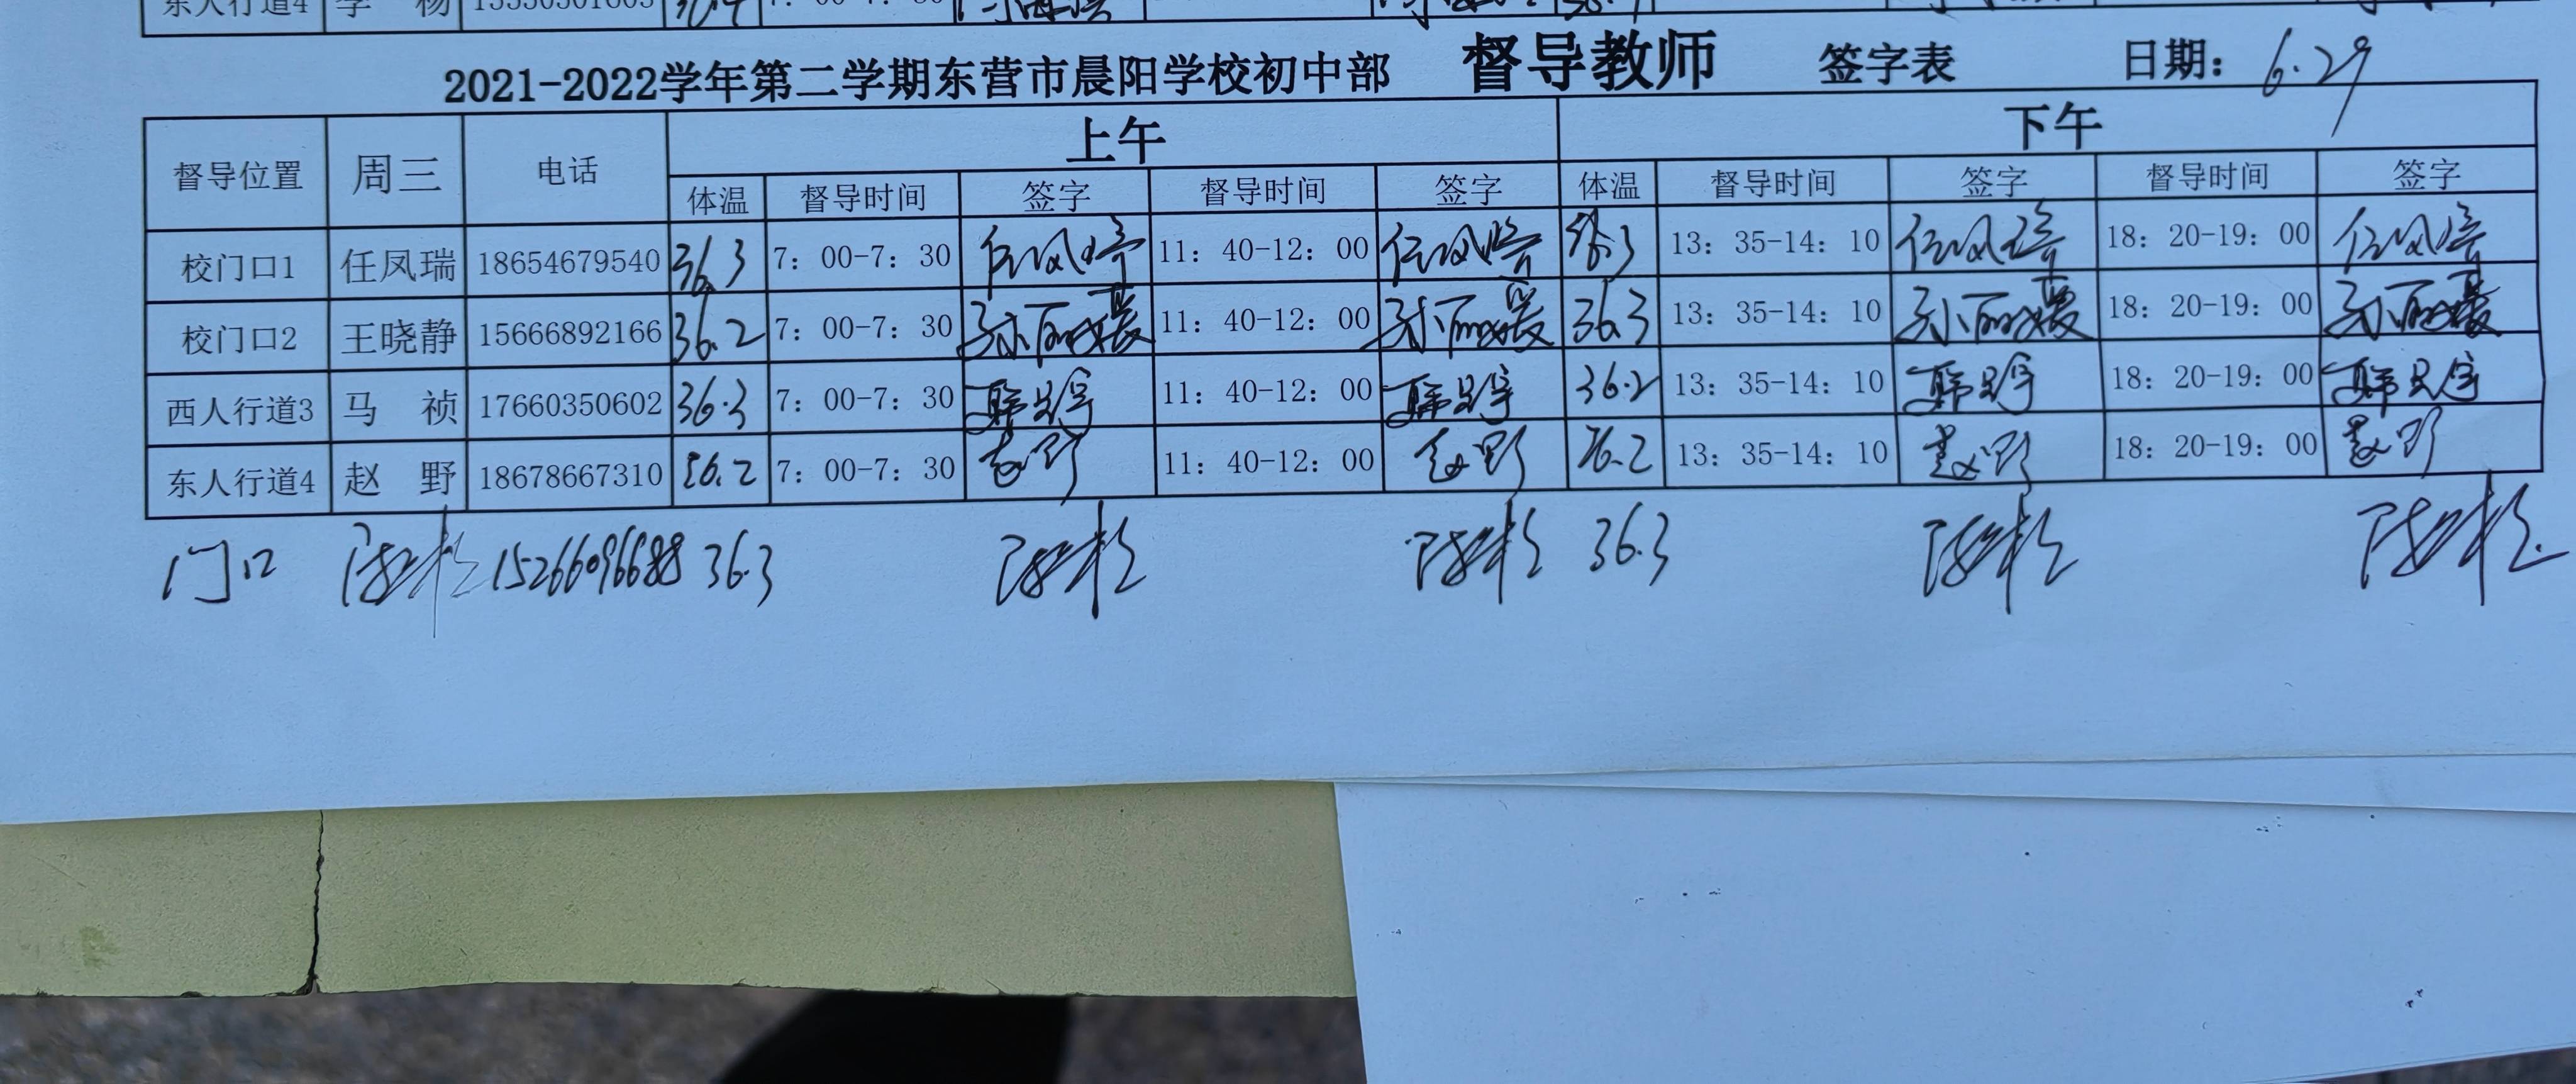 东人行道4 李 杨
2021-2022学年第二学期东营市晨阳学校初中部 督导教师 签字表 日期: 6.29
督导位置 周三 电话 上午 下午
体温 督导时间 签字 督导时间 签字 体温 督导时间 签字 督导时间 签字
校门口1 任凤瑞 18654679540 36.3 7: 00-7: 30 11: 40-12: 00 36.3 13: 35-14: 10 18: 20-19: 00
校门口2 王晓静 15666892166 36.2 7: 00-7: 30 孙丽媛 11: 40-12: 00 孙丽媛 36.3 13: 35-14: 10 孙丽媛 18: 20-19: 00 孙丽媛
西人行道3 马 祯 17660350602 36.3 7: 00-7: 30 11: 40-12: 00 36.2 13: 35-14: 10 18: 20-19: 00
东人行道4 赵 野 18678667310 36.2 7: 00-7: 30 赵野 11: 40-12: 00 赵野 36.2 13: 35-14: 10 赵野 18: 20-19: 00 赵野
门口 15266096688 36.3 36.3